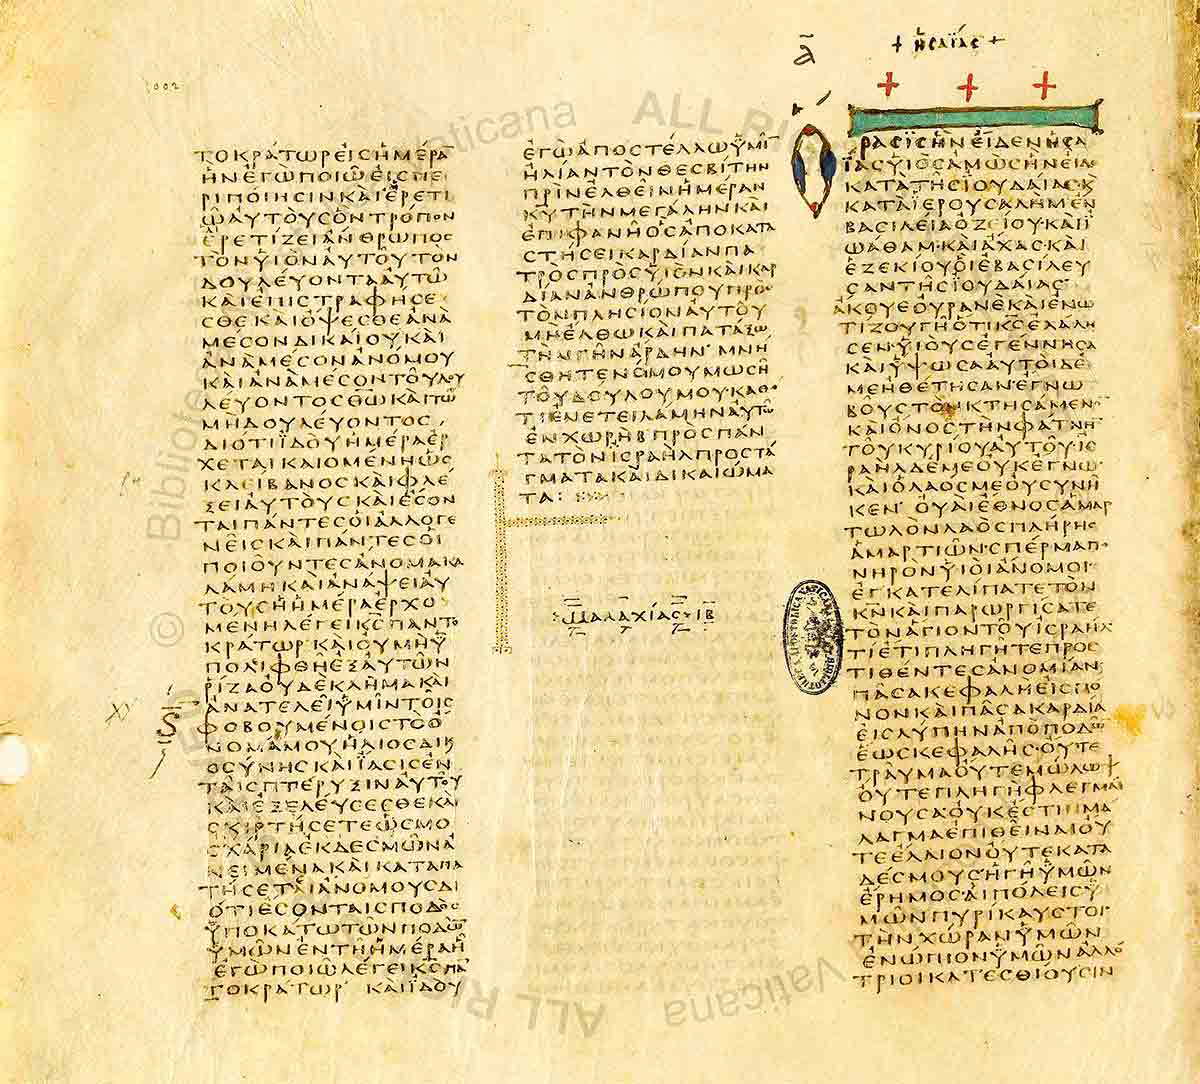 1002
ᾱ
+ ἨϹΑΪΑϹ +
ΤΟΚΡΑΤΩΡΕΙϹΗΜΕΡΑ̅
ΗΝΕΓΩΠΟΙΩΕΙϹΠΕ
ΡΙΠΟΙΗϹΙΝΚΑΙΕΡΕΤΙ
ΩΑΥΤΟΥϹΟΝΤΡΟΠΟΝ
ΕΡΕΤΙΖΕΙΑΝΘΡΩΠΟϹ
ΤΟΝΥΙΟΝΑΥΤΟΥΤΟΝ
ΔΟΥΛΕΥΟΝΤΑΑΥΤΩ
ΚΑΙΕΠΙϹΤΡΑΦΗϹΕ
ϹΘΕΚΑΙΟΨΕϹΘΕΑΝΑ
ΜΕϹΟΝΔΙΚΑΙΟΥΚΑΙ
ΑΝΑΜΕϹΟΝΑΝΟΜΟΥ
ΚΑΙΑΝΑΜΕϹΟΝΤΟΥΔΟΥ
ΛΕΥΟΝΤΟϹΘΩ̅ΚΑΙΤΟΥ
ΜΗΔΟΥΛΕΥΟΝΤΟϹ
ΔΙΟΤΙΪΔΟΥΗΜΕΡΑΕΡ
ΧΕΤΑΙΚΑΙΟΜΕΝΗΩϹ
ΚΛΕΙΒΑΝΟϹΚΑΙΦΛΕ
ΞΕΙΑΥΤΟΥϹΚΑΙΕϹΟΝ
ΤΑΙΠΑΝΤΕϹΟΙΑΛΛΟΓΕ
ΝΕΙϹΚΑΙΠΑΝΤΕϹΟΙ
ΠΟΙΟΥΝΤΕϹΑΝΟΜΑΚΑ
ΛΑΜΗΚΑΙΑΝΑΨΕΙΑΥ
ΤΟΥϹΗΗΜΕΡΑΕΡΧΟ
ΜΕΝΗΛΕΓΕΙΚ̅Ϲ̅ΠΑΝΤΟ
ΚΡΑΤΩΡΚΑΙΟΥΜΗΫ
ΠΟΛΙΦΘΗΕΞΑΥΤΩΝ
ΡΙΖΑΟΥΔΕΚΛΗΜΑΚΑΙ
ΑΝΑΤΕΛΕΙΫΜΙΝΤΟΙϹ
ΦΟΒΟΥΜΕΝΟΙϹΤΟΟ
ΝΟΜΑΜΟΥΗΛΙΟϹΔΙΚΑΙ
ΟϹΥΝΗϹΚΑΙΪΑϹΙϹΕΝ
ΤΑΙϹΠΤΕΡΥΞΙΝΑΥΤΟΥ
ΚΑΙΕΞΕΛΕΥϹΕϹΘΕΚΑΙ
ϹΚΙΡΤΗϹΕΤΕΩϹΜΟ
ϹΧΑΡΙΑΕΚΔΕϹΜΩΝΑ
ΝΕΙΜΕΝΑΚΑΙΚΑΤΑΠΑ
ΤΗϹΕΤΑΙΑΝΟΜΟΥϹΔΙ
ΟΤΙΕϹΟΝΤΑΙϹΠΟΔΟϹ
ΫΠΟΚΑΤΩΤΩΝΠΟΔΩΝ
ΫΜΩΝΕΝΤΗΗΜΕΡΑΗ
ΕΓΩΠΟΙΩΛΕΓΕΙΚ̅Ϲ̅ΠΑ̅
ΤΟΚΡΑΤΩΡ ΚΑΙΪΔΟΥ
ΕΓΩΑΠΟϹΤΕΛΛΩΫΜΙ̅
ΗΛΙΑΝΤΟΝΘΕϹΒΙΤΗΝ
ΠΡΙΝΕΛΘΕΙΝΗΜΕΡΑΝ
ΚΥΤΗΝΜΕΓΑΛΗΝΚΑΙ
ΕΠΙΦΑΝΗΟϹΑΠΟΚΑΤΑ
ϹΤΗϹΕΙΚΑΡΔΙΑΝΠΑ
ΤΡΟϹΠΡΟϹΥΙΟΝΚΑΙΚΑΡ
ΔΙΑΝΑΝΘΡΩΠΟΥΠΡΟϹ
ΤΟΝΠΛΗϹΙΟΝΑΥΤΟΥ
ΜΗΕΛΘΩΚΑΙΠΑΤΑΞΩ
ΤΗΝΓΗΝΑΡΔΗΝ ΜΝΗ
ϹΘΗΤΕΝΟΜΟΥΜΩϹΗ
ΤΟΥΔΟΥΛΟΥΜΟΥΚΑΘΟ
ΤΙΕΝΕΤΕΙΛΑΜΗΝΑΥΤΩ
ΕΝΧΩΡΗΒΠΡΟϹΠΑΝ
ΤΑΤΟΝΙϹΡΑΗΛΠΡΟϹΤΑ
ΓΜΑΤΑΚΑΙΔΙΚΑΙΩΜΑ
ΤΑ:
ΜΑΛΑΧΙΑϹ·ΙΒ
ΟΡΑϹΙϹΗΝΕΙΔΕΝΗϹΑ
ΪΑϹΥΙΟϹΑΜΩϹΗΝΕΙΔΕ
ΚΑΤΑΤΗϹΙΟΥΔΑΙΑϹΚ
ΚΑΤΑΙΕΡΟΥϹΑΛΗΜΕΝ
ΒΑϹΙΛΕΙΑΟΖΕΙΟΥ·ΚΑΙΪ
ΩΑΘΑΜ·ΚΑΙΑΧΑϹ·ΚΑΙ
ΕΖΕΚΙΟΥΟΙΕΒΑϹΙΛΕΥ
ϹΑΝΤΗϹΙΟΥΔΑΙΑϹ
ΑΚΟΥΕΟΥΡΑΝΕΚΑΙΕΝΩ
ΤΙΖΟΥΓΗΟΤΙΚ̅Ϲ̅ΕΛΑΛΗ
ϹΕΝ·ΥΙΟΥϹΕΓΕΝΝΗϹΑ
ΚΑΙΫΨΩϹΑΑΥΤΟΙΔΕ
ΜΕΗΘΕΤΗϹΑΝΕΓΝΩ
ΒΟΥϹΤΟΝΚΤΗϹΑΜΕΝΟ
ΚΑΙΟΝΟϹΤΗΝΦΑΤΝΗ
ΤΟΥΚΥΡΙΟΥΑΥΤΟΥ·ΙϹ
ΡΑΗΛΔΕΜΕΟΥΚΕΓΝΩ
ΚΑΙΟΛΑΟϹΜΕΟΥϹΥΝΗ
ΚΕΝ ΟΥΑΙΕΘΝΟϹΑΜΑΡ
ΤΩΛΟΝΛΑΟϹΠΛΗΡΗϹ
ΑΜΑΡΤΙΩΝϹΠΕΡΜΑΠΟ
ΝΗΡΟΝΥΙΟΙΑΝΟΜΟΙ
ΕΓΚΑΤΕΛΙΠΑΤΕΤΟΝ
Κ̅Ν̅ΚΑΙΠΑΡΩΡΓΙϹΑΤΕ
ΤΟΝΑΓΙΟΝΤΟΥΙϹΡΑΗΛ
ΤΙΕΤΙΠΛΗΓΗΤΕΠΡΟϹ
ΤΙΘΕΝΤΕϹΑΝΟΜΙΑΝ
ΠΑϹΑΚΕΦΑΛΗΕΙϹΠΟ
ΝΟΝΚΑΙΠΑϹΑΚΑΡΔΙΑ
ΕΙϹΛΥΠΗΝΑΠΟΠΟΔΩ̅
ΕΩϹΚΕΦΑΛΗϹ·ΟΥΤΕ
ΤΡΑΥΜΑΟΥΤΕΜΩΛΩΨ
ΟΥΤΕΠΛΗΓΗΦΛΕΓΜΑΙ
ΝΟΥϹΑ·ΟΥΚΕϹΤΙΝΜΑ
ΛΑΓΜΑΕΠΙΘΕΙΝΑΙΟΥ
ΤΕΕΛΑΙΟΝΟΥΤΕΚΑΤΑ
ΔΕϹΜΟΥϹ·ΗΓΗΫΜΩΝ
ΕΡΗΜΟϹ·ΑΙΠΟΛΕΙϹΫ
ΜΩΝΠΥΡΙΚΑΥϹΤΟΙ
ΤΗΝΧΩΡΑΝΫΜΩΝ
ΕΝΩΠΙΟΝΫΜΩΝΑΛΛΟ
ΤΡΙΟΙΚΑΤΕϹΘΙΟΥϹΙΝ